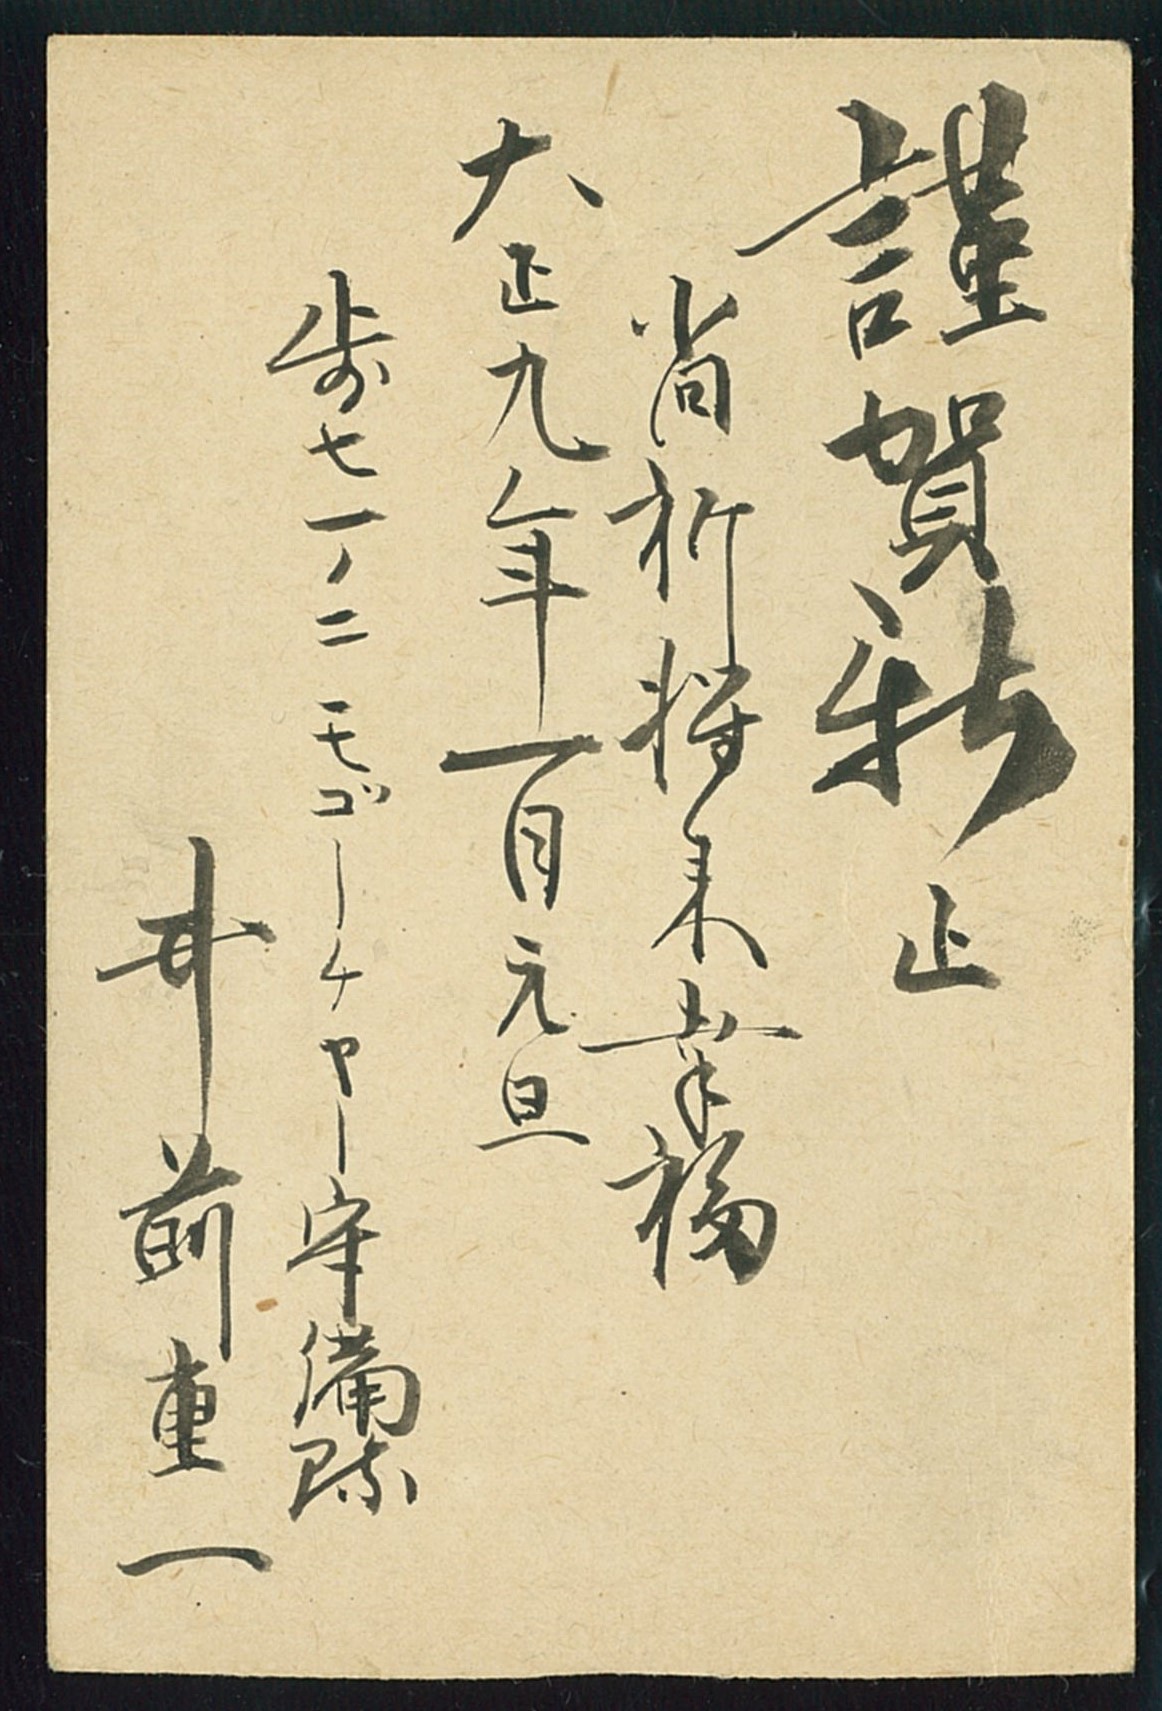 謹賀新正
尚祈将来幸福
大正九年一月元旦
歩七一ノ二モゴーチヤー守備隊
井前重一